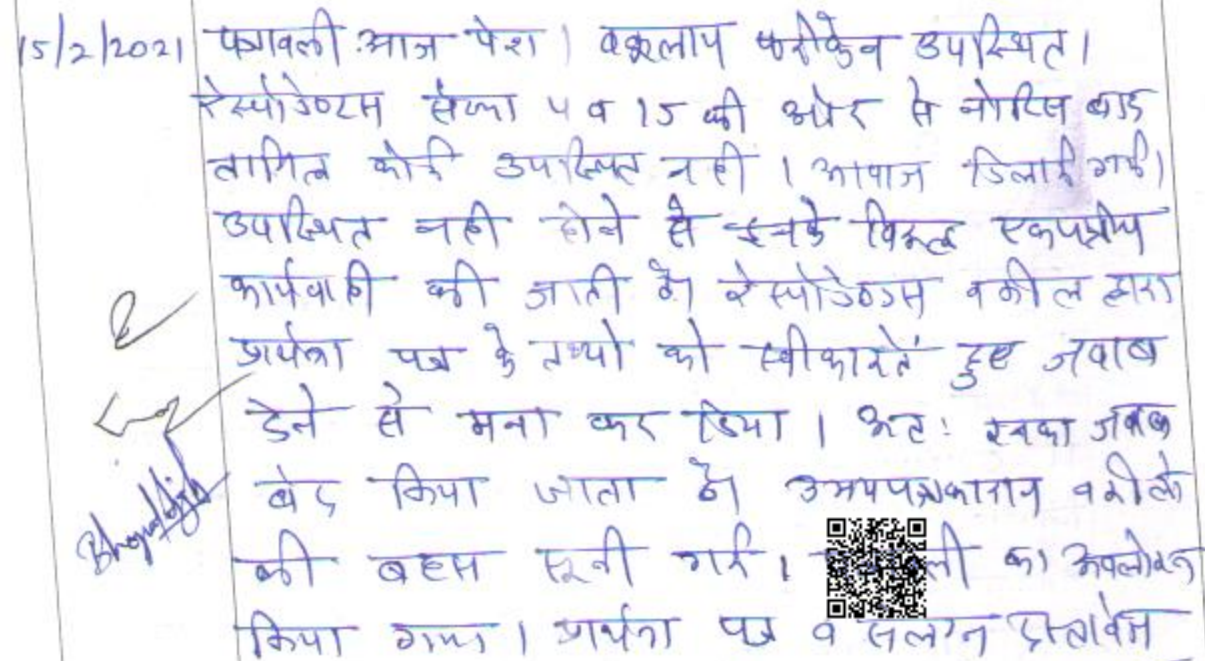 15/2/2021 पत्रावली आज पेश। वकूलाय फरीकेन उपस्थित।
रेस्पोडेण्टस संख्या 4 व 15 की ओर से नोटिस बाद
तामिल कोई उपस्थित नही । आवाज दिलाई गई।
उपस्थित नही होने से इनके विरूद्ध एकपक्षीय
कार्यवाही की जाती है। रेस्पोडेण्डस वकील द्वारा
प्रार्थना पत्र के तथ्यो को स्वीकारतें हुए जवाब
देने से मना कर दिया । अत: इनका जवाब
बंद किया जाता है। उभयपक्षकारान वकीलो
की बहस सुनी गई। ली का अवलोकन
किया गया । प्रार्थना पत्र व सलग्न दस्तावेज